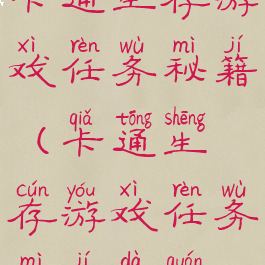 卡通生存游
xì rèn wù mì jí
戏任务秘籍
qiǎ tōng shēng
(卡通生
cún yóu xì rèn wù
存游戏任务
mì jí dà quán